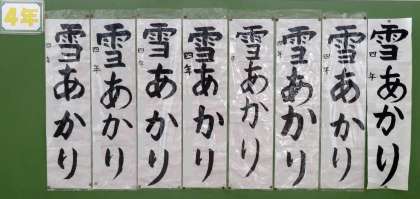 4年
雪あかり
四年
雪あかり
四年
雪あかり
四年
雪あかり
四年
雪あかり
四年
雪あかり
四年
雪あかり
四年
雪あかり
四年